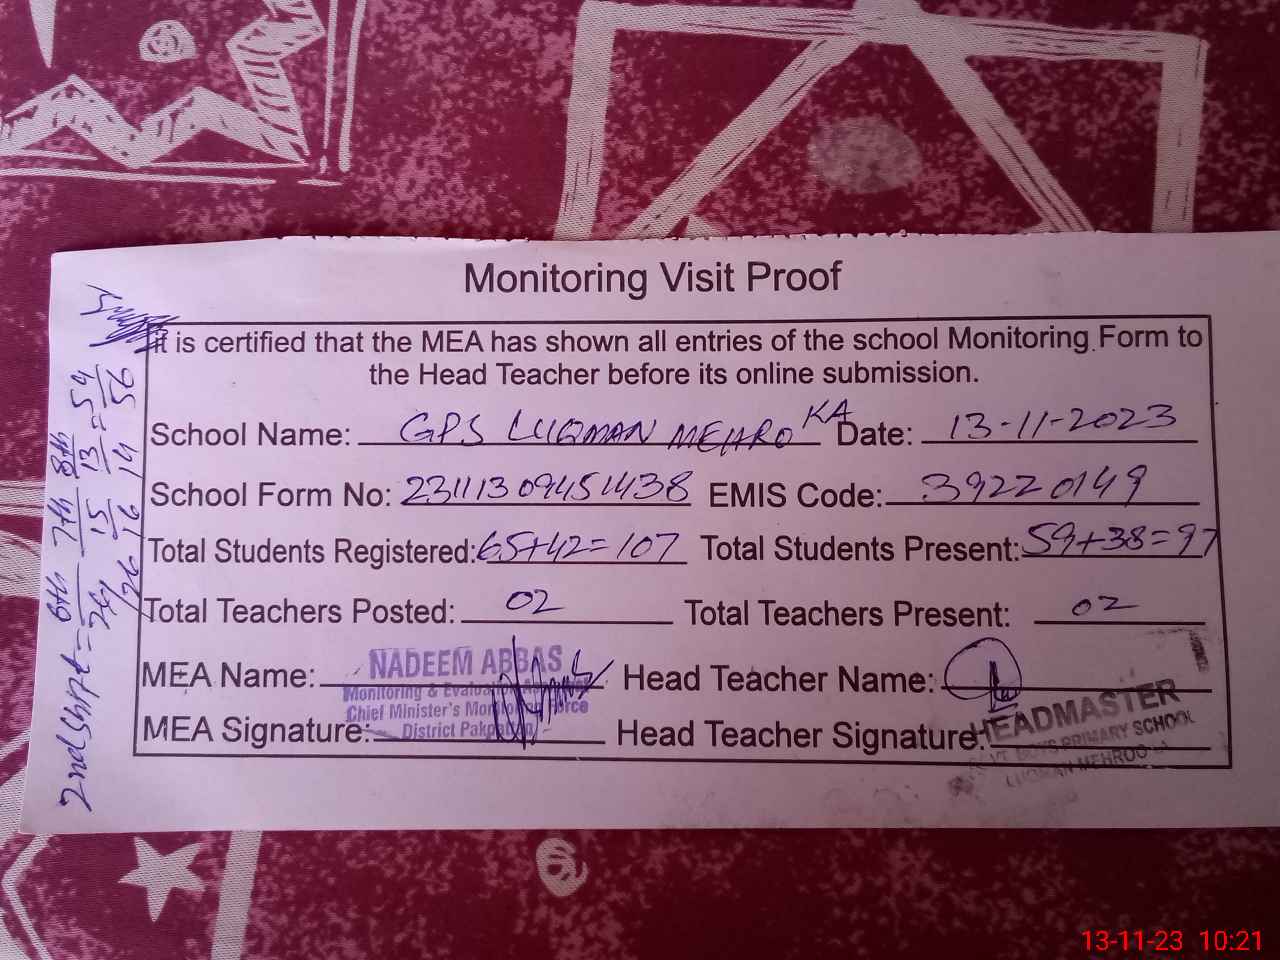 Monitoring Visit Proof
it is certified that the MEA has shown all entries of the school Monitoring Form to
the Head Teacher before its online submission.
School Name: GPS LUQMAN MEHROKA Date: 13-11-2023
School Form No: 23111309451438 EMIS Code: 39220149
Total Students Registered: 65+42=107 Total Students Present: 59+38=97
Total Teachers Posted: 02 Total Teachers Present: 02
MEA Name: NADEEM ABBAS Head Teacher Name:
Monitoring & Evaluation
Chief Minister's Monitoring Force
MEA Signature: District Pakpattan Head Teacher Signature:
HEADMASTER
GOVT. BOYS PRIMARY SCHOOL
LUQMAN MEHROO
6th 7th 8th
15 13 = 54
26 16 14 56
13-11-23 10:21